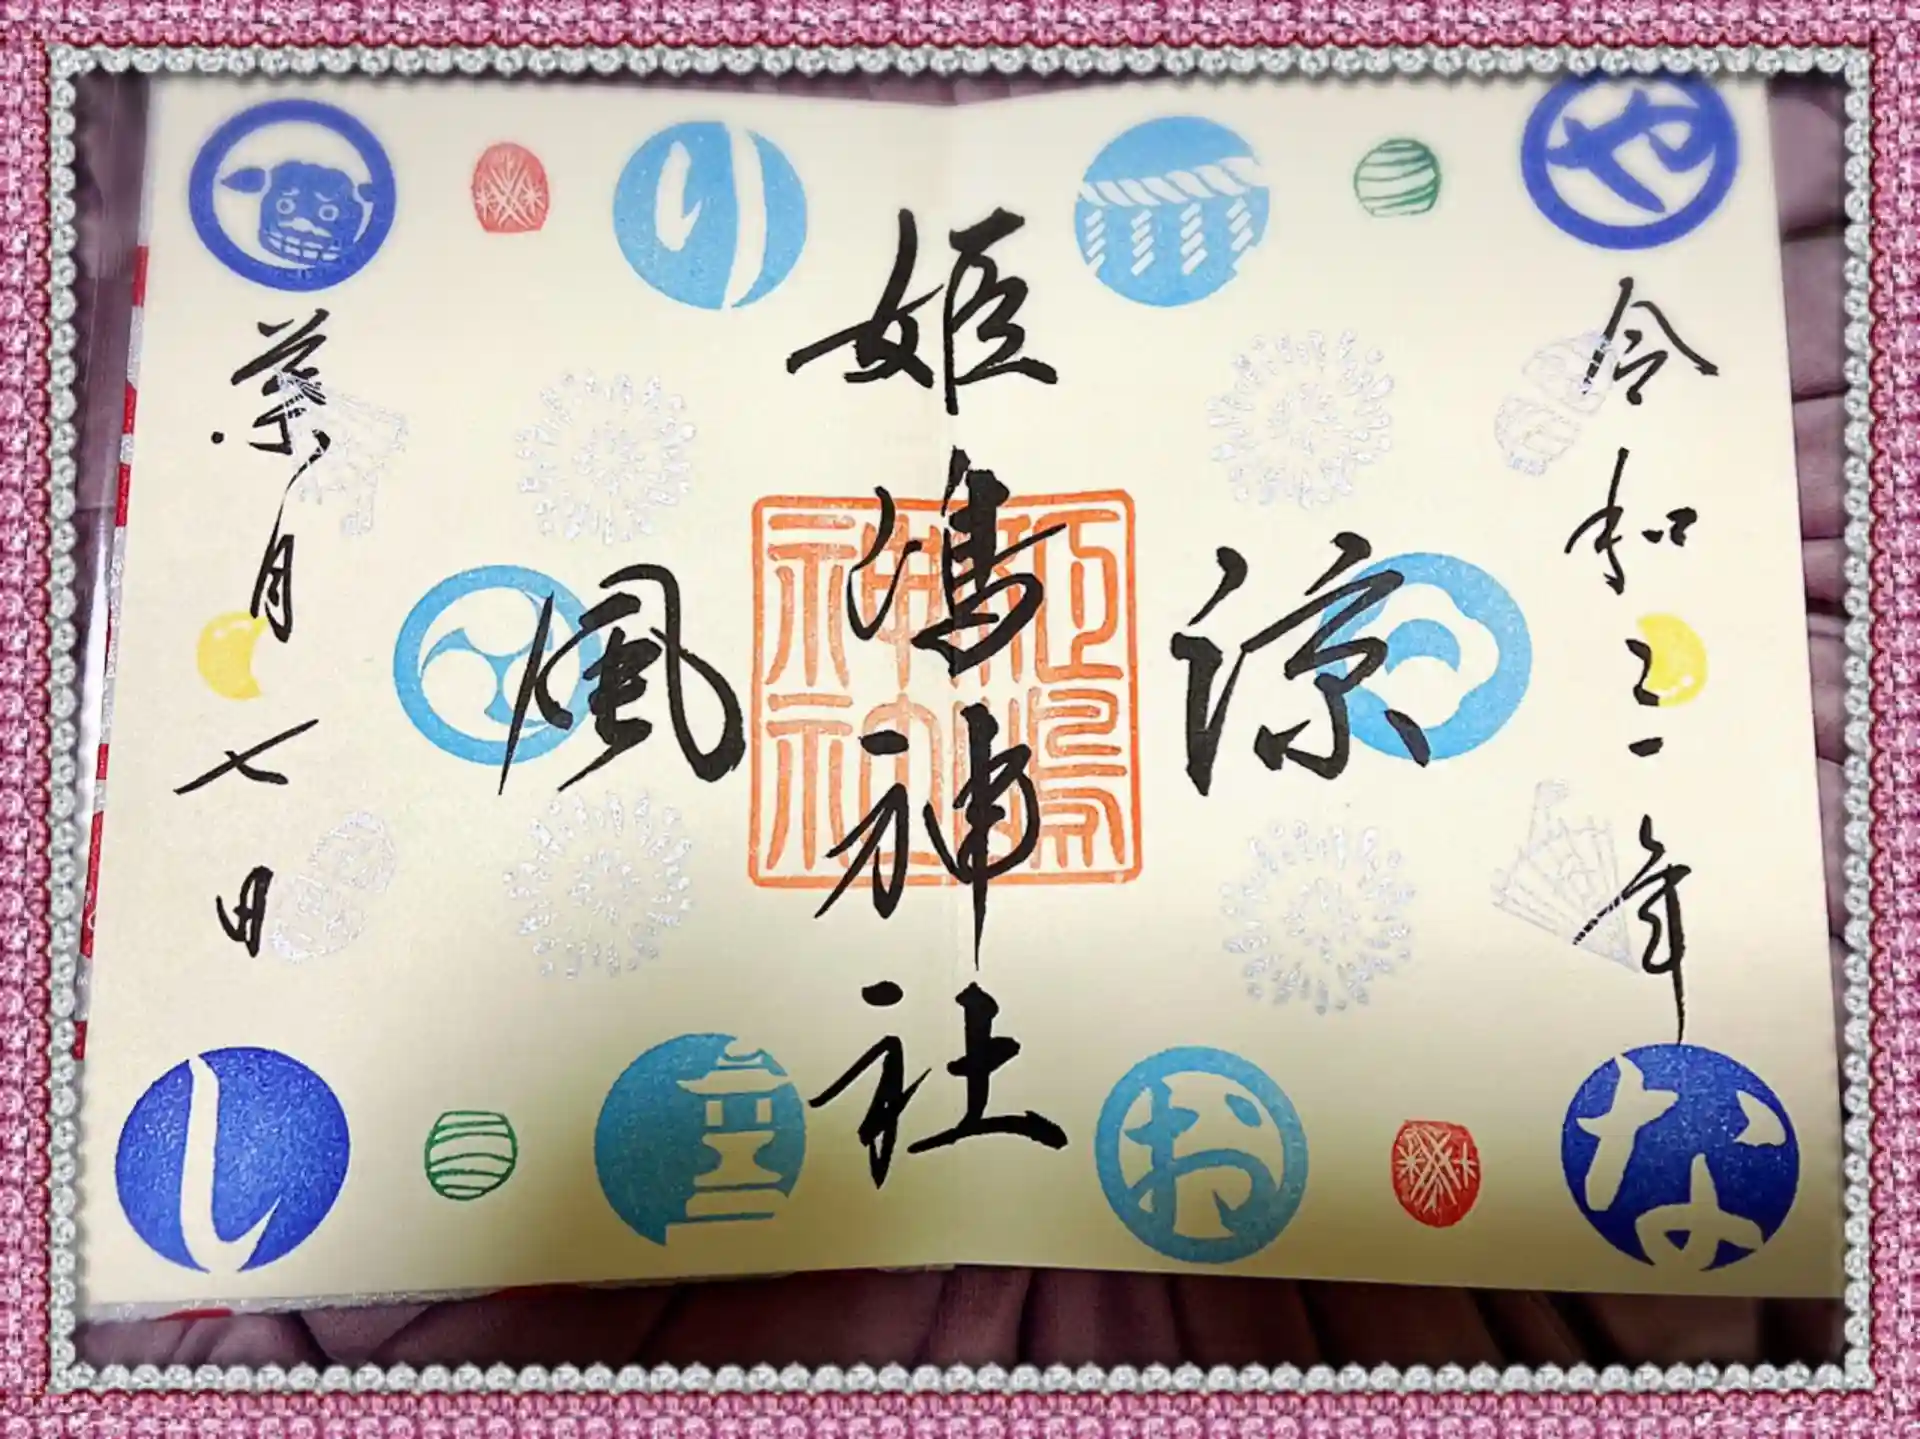 や
り
令和三年
涼
姫嶋神社
風
葉月七日
な
お
し
姫嶋
神社